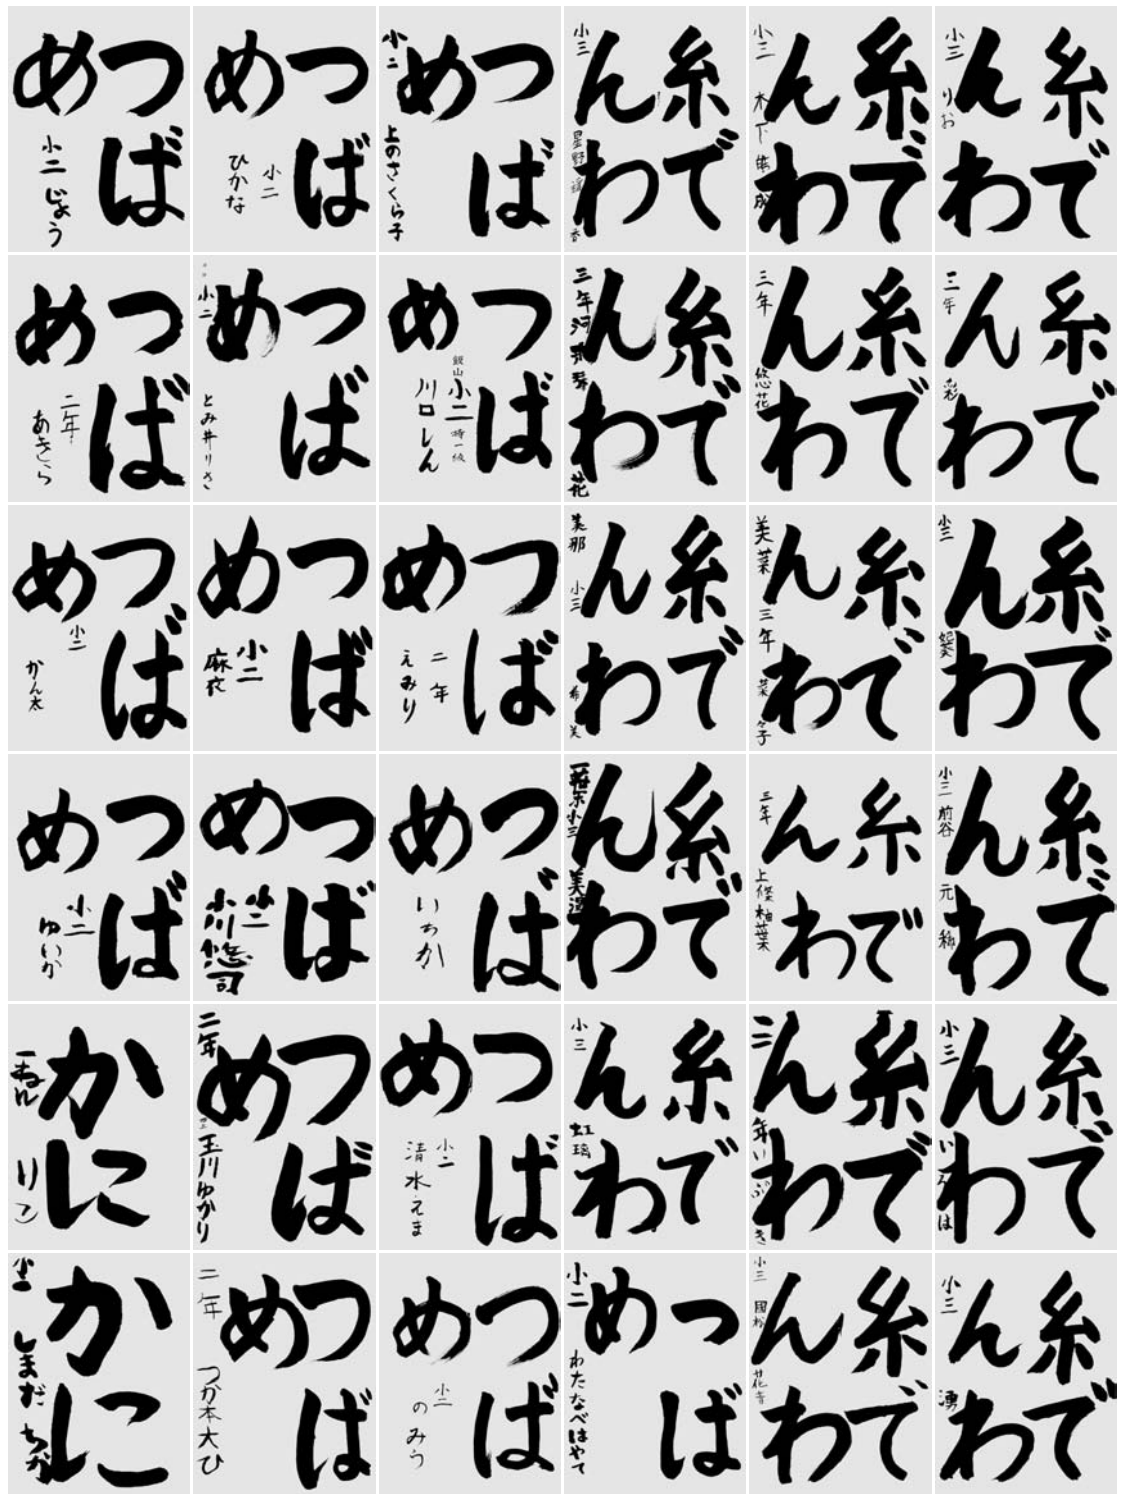 つば
め
小二 じょう
つば
め
小二
ひかな
つば
め
小二 上のさくら子
糸で
んわ
小三 星野
糸で
んわ
小三 木下
糸で
んわ
小三 りお
つば
め
二年
あきら
つば
め
小二 とみ井りさ
つば
め
飯山 小二 特一級
川口しん
糸で
んわ
三年 河 琴花
糸で
んわ
三年 悠花
糸で
んわ
三年 彩
つば
め
小二
かん太
つば
め
小二
麻衣
つば
め
二年
えみり
糸で
んわ
美那 小三 希美
糸で
んわ
美菜 三年 菜々子
糸で
んわ
小三
つば
め
小二
ゆいか
つば
め
小二
小川悠司
つば
め
いちか
糸で
んわ
小三 美
糸で
んわ
三年 上條柚葉
糸で
んわ
小三 前谷 元
かに
一ねん りこ
つば
め
二年 玉川ゆかり
つば
め
小二
清水えま
糸で
んわ
小三 虹璃
糸で
んわ
三年 いぶき
糸で
んわ
小三 いろは
かに
小一 しまだ ちか
つば
め
二年 つか本大ひ
つば
め
小二
のみう
つば
め
小二 わたなべはやて
糸で
んわ
小三 國松 花音
糸で
んわ
小三 湧